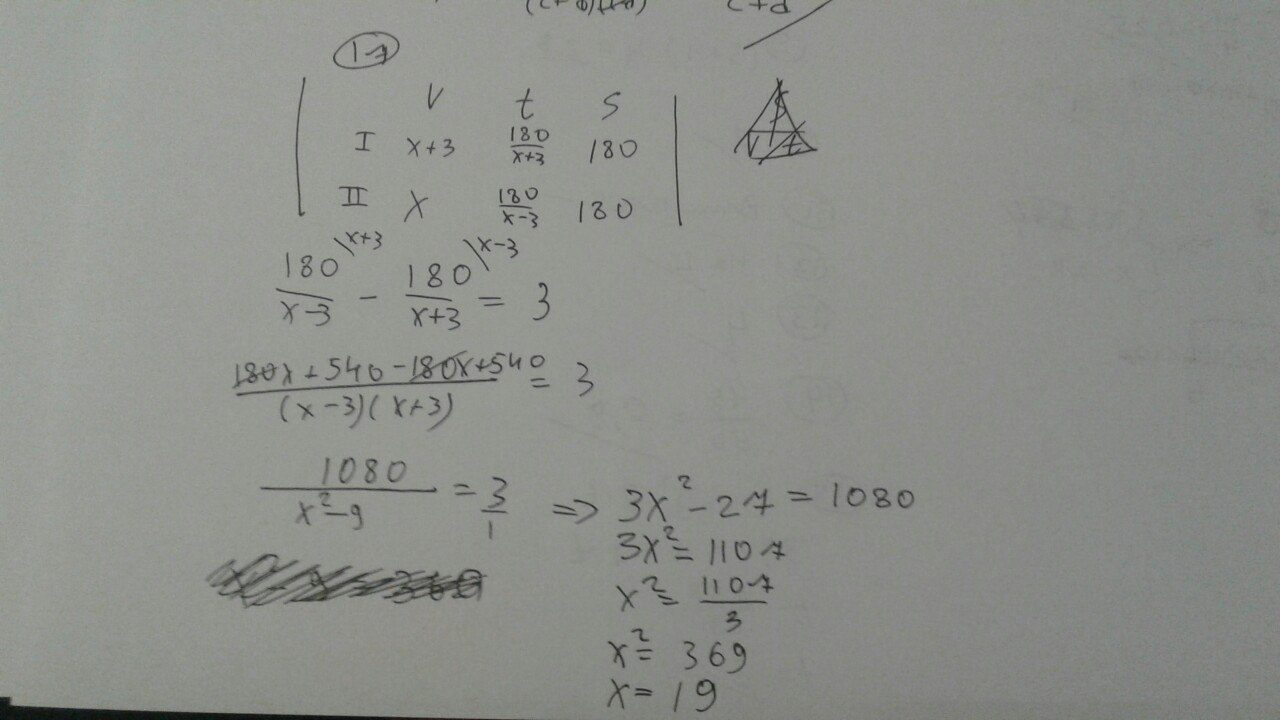 1-7
V t S
I x+3 180/(x+3) 180
II X 180/(x-3) 180
180/(x-3) \x+3 - 180/(x+3) \x-3 = 3
(180x+540-180x+540)/((x-3)(x+3)) = 3
1080/(x²-9) = 3/1 => 3x²-27=1080
3x²=1107
x²=1107/3
x²=369
x=19